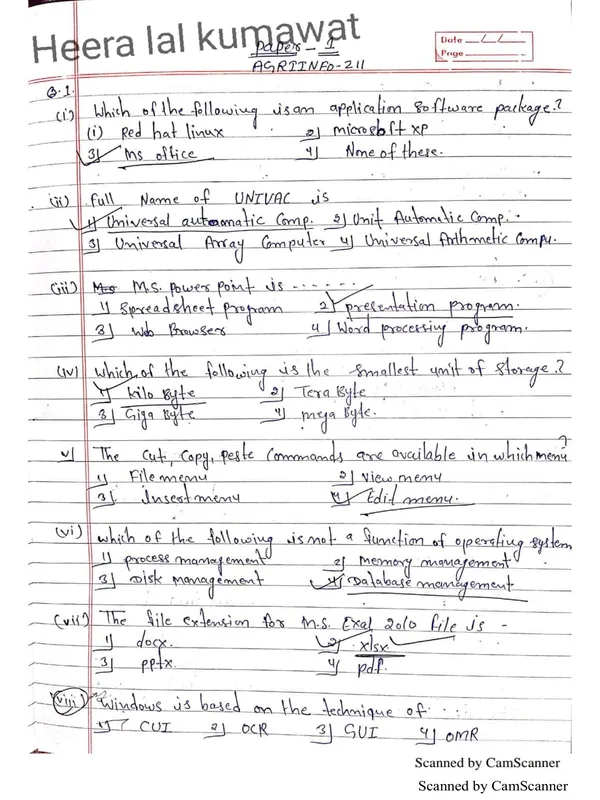 Heera lal kumawat
Paper - I
AGRIINFO-211
Date __/__/__
Page
Q.1.
(i) Which of the following is an application software package?
(i) Red hat linux 2) microsoft XP
3) Ms office 4) None of these.
(ii) Full Name of UNIVAC is
1) Universal automatic Comp. 2) Unit Automatic Comp.
3) Universal Array Computer 4) Universal Arthmetic Compu.
(iii) M.S. Power point is ------
1) Spreadsheet program 2) presentation program.
3) Web Browsers 4) Word processing program.
(iv) Which of the following is the smallest unit of storage?
1) Kilo Byte 2) Tera Byte
3) Giga Byte 4) mega Byte.
v) The Cut, Copy, peste Commands are available in which menu?
1) File menu 2) View menu
3) Insert menu 4) Edit menu.
(vi) which of the following is not a function of operating system
1) process management 2) Memory management
3) Disk management 4) Database management
(vii) The file extension for M.S. Exal 2010 file is -
1) docx. 2) xlsx
3) pptx. 4) pdf.
(viii) Windows is based on the technique of ....
1) CUI 2) OCR 3) GUI 4) OMR
Scanned by CamScanner
Scanned by CamScanner